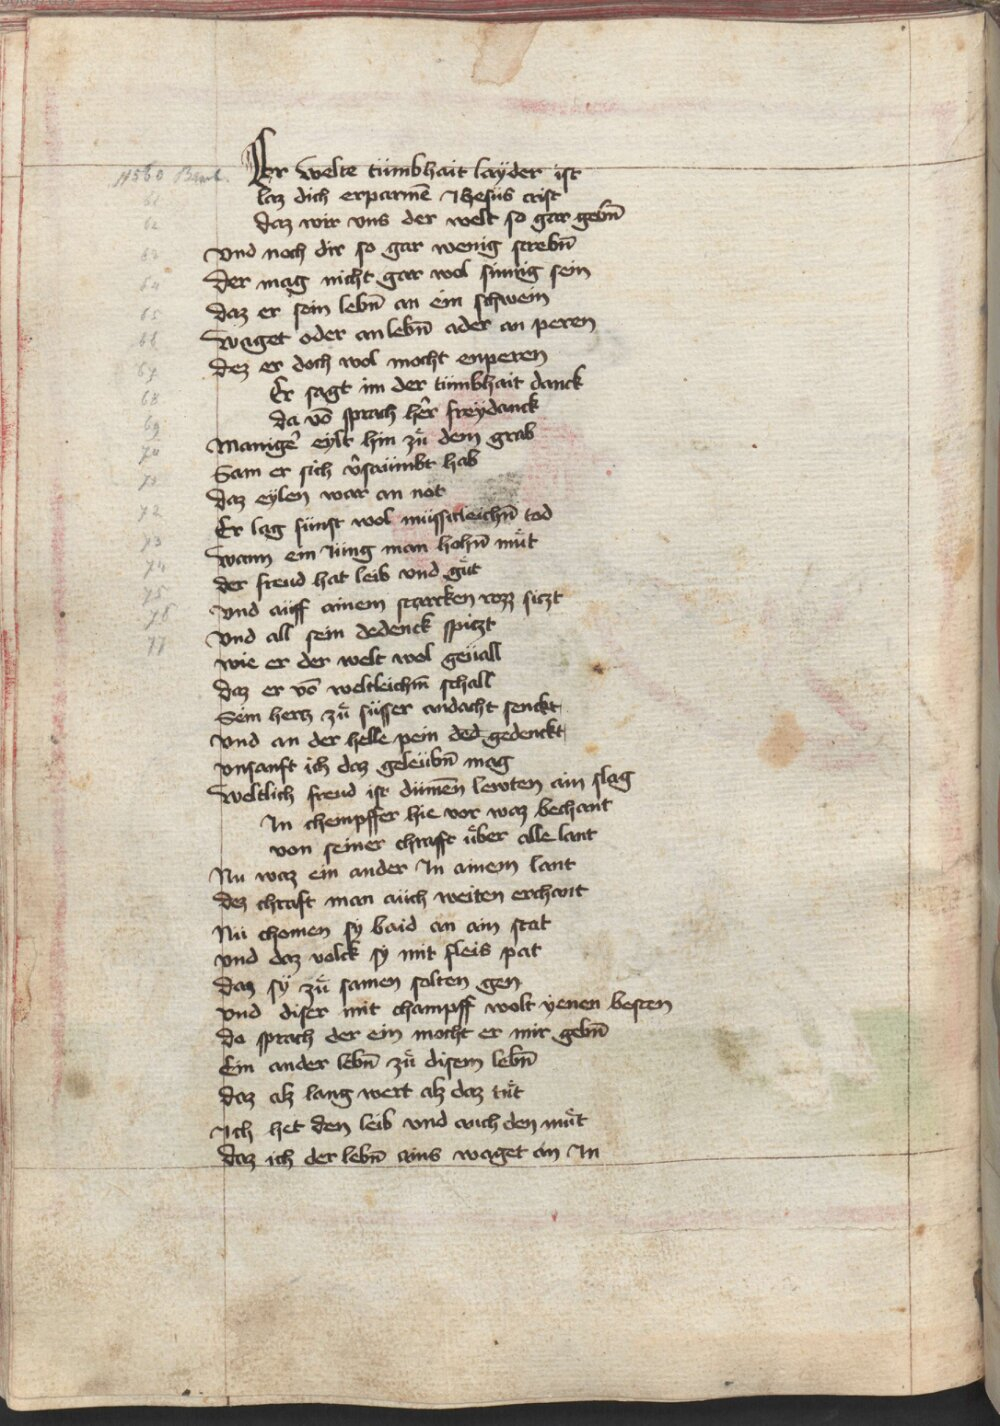 11560 Bamb.
Der welte tümbhait layder ist
61
laz dich erparmē Ihesüs crist
62
daz wir vns der welt so gar gebn̄
63
vnd noch dir so gar wenig strebn̄
64
Der mag nicht gar wol sinnig sein
65
daz er sein lebn̄ an ein schwein
66
Waget oder an lebn̄ ader an peren
67
dez er doch wol mocht enperen
68
Er sagt im der tümbhait danck
69
da vō sprach her̄ freydanck
70
Maniger̄ eylt hin zů dem grab
71
Sam er sich v̄saümbt hab
daz eylen war an not
72
Er lag sünst wol müssicleichn̄ tod
73
Wann ein Jüng man hohn̄ můt
74
der freud hat leib vnd gůt
75
vnd aüff ainem starcken rozz siczt
76
vnd all sein dedenck spiczt
77
wie er der welt wol geüall
daz er vō weltleichm̄ schall
Sein hertz zů süsser andacht senckt
vnd an der helle pein ded gedenckt
vnsanft ich daz geleübn̄ mag
Weltlich freud ist dümēn lewten ain slag
In chempffer hie vor waz bechant
von seiner chrafft über alle lant
Nu waz ein ander In ainem lant
dez chraft man aüch weiten erchant
Nü chomen sy baid an ain stat
vnd daz volck sy mit fleis pat
daz sÿ zů samen solten gen
vnd diser mit champff wolt yenen besten
do sprach der ein mocht er mir gebn̄
Ein ander lebn̄ zů disem lebn̄
daz alz lang wert alz daz tůt
Ich het den leib vnd auch den můt
daz ich der lebn̄ ains waget an In